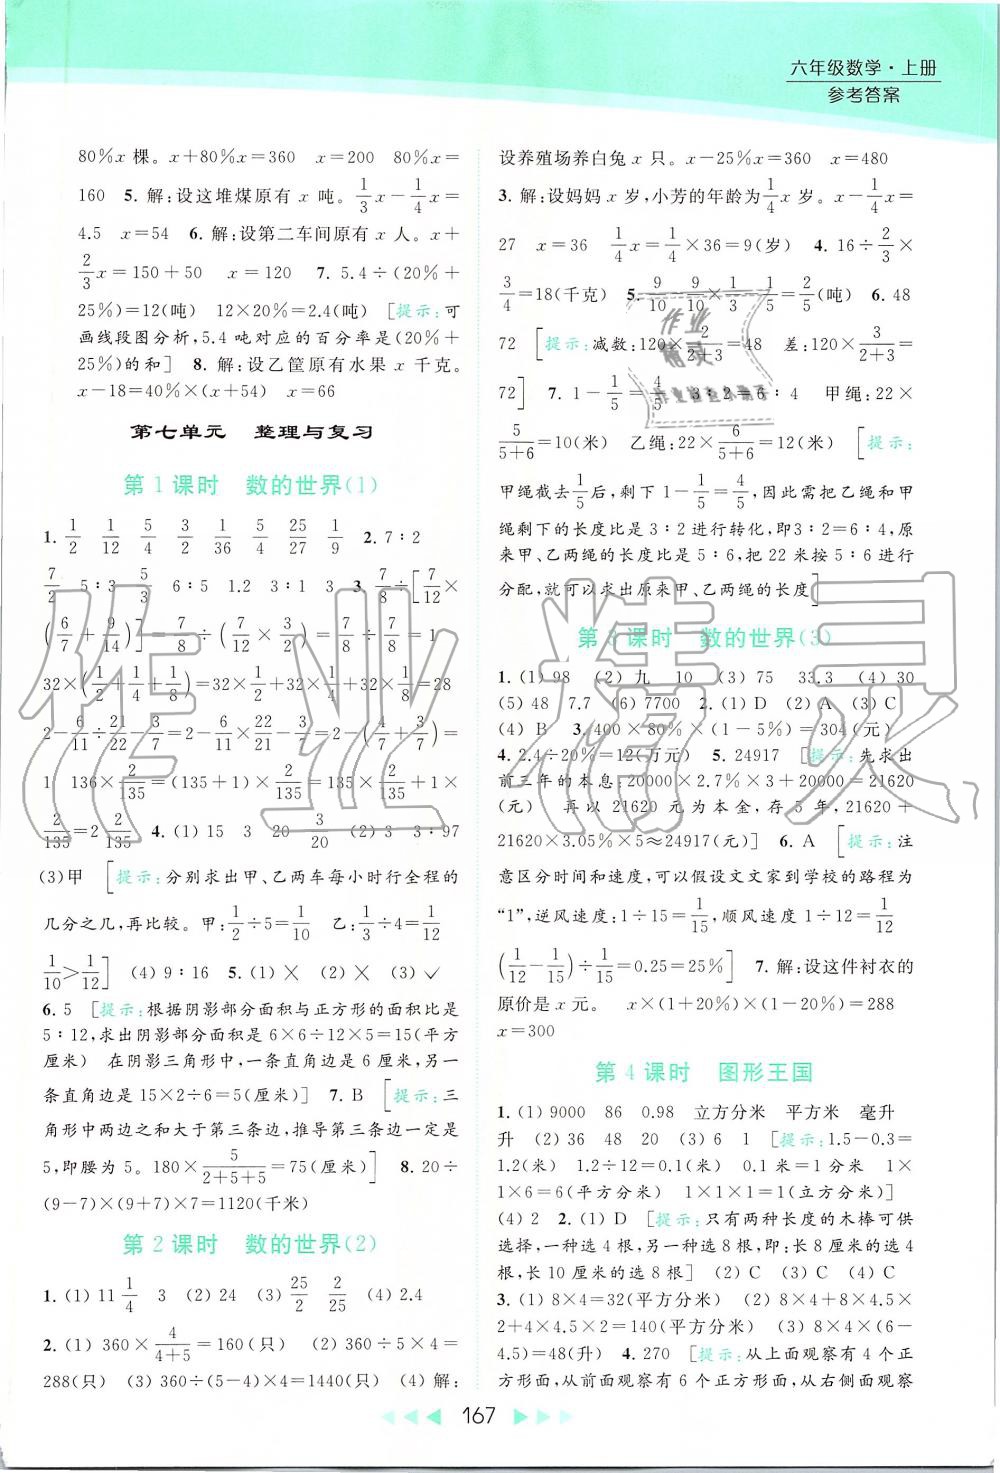 六年级数学·上册
参考答案
80%x 棵。x+80%x=360 x=200 80%x=
160 5. 解:设这堆煤原有 x 吨。1/3x-1/4x=
4.5 x=54 6. 解:设第二车间原有 x 人。x+
2/3x=150+50 x=120 7. 5.4÷(20%+
25%)=12(吨) 12×20%=2.4(吨) [提示:可
画线段图分析,5.4 吨对应的百分率是(20%+
25%)的和] 8. 解:设乙筐原有水果 x 千克。
x-18=40%×(x+54) x=66
第七单元 整理与复习
第 1 课时 数的世界(1)
1. 1/2 1/12 5/4 3/2 1/36 5/4 25/27 1/9 2. 7∶2
7/2 5∶3 5/3 6∶5 1.2 3∶1 3 3. 7/8÷[7/12×
(6/7+9/14)]=7/8÷(7/12×3/2)=7/8÷7/8=1
32×(1/2+1/4+1/8)=32×1/2+32×1/4+32×1/8=28
2-6/11÷21/22-3/7=2-6/11×22/21-3/7=2-(4/7+3/7)=
1 136×2/135=(135+1)×2/135=135×2/135+1×
2/135=2 2/135 4. (1) 15 3 20 3/20 (2) 3 3∶97
(3)甲 [提示:分别求出甲、乙两车每小时行全程的
几分之几,再比较。甲:1/2÷5=1/10 乙:1/3÷4=1/12
1/10>1/12] (4) 9∶16 5. (1)× (2)× (3)✓
6. 5 [提示:根据阴影部分面积与正方形的面积比是
5∶12,求出阴影部分面积是 6×6÷12×5=15(平方
厘米) 在阴影三角形中,一条直角边是 6 厘米,另一
条直角边是 15×2÷6=5(厘米)] 7. B [提示:三
角形中两边之和大于第三条边,推导第三条边一定是
5,即腰为 5。180×5/(2+5+5)=75(厘米)] 8. 20÷
(9-7)×(9+7)×7=1120(千米)
第 2 课时 数的世界(2)
1. (1) 11 1/4 3 (2) 24 (3) 25/2 2/25 (4) 2.4
2. (1) 360×4/(4+5)=160(只) (2) 360÷5×4=
288(只) (3) 360÷(5-4)×4=1440(只) (4) 解:
设养殖场养白兔 x 只。x-25%x=360 x=480
3. 解:设妈妈 x 岁,小芳的年龄为1/4x 岁。x-1/4x=
27 x=36 1/4x=1/4×36=9(岁) 4. 16÷2/3×
3/4=18(千克) 5. 9/10-9/10×1/3÷1/5=2/5(吨) 6. 48
72 [提示:减数:120×2/(2+3)=48 差:120×3/(2+3)=
72] 7. 1-1/5=4/5 3∶2=6∶4 甲绳:22×
5/(5+6)=10(米) 乙绳:22×6/(5+6)=12(米) [提示:
甲绳截去1/5后,剩下 1-1/5=4/5,因此需把乙绳和甲
绳剩下的长度比是 3∶2 进行转化,即3∶2=6∶4,原
来甲、乙两绳的长度比是 5∶6,把 22 米按 5∶6 进行
分配,就可以求出原来甲、乙两绳的长度]
第 3 课时 数的世界(3)
1. (1) 98 (2) 九 10 (3) 75 33.3 (4) 30
(5) 48 7.7 (6) 7700 2. (1) D (2) A (3) C
(4) B 3. 400×80%×(1-5%)=304(元)
4. 2.4÷20%=12(万元) 5. 24917 [提示:先求出
前三年的本息:20000×2.7%×3+20000=21620
(元) 再以 21620 元为本金,存 5 年,21620+
21620×3.05%×5≈24917(元)] 6. A [提示:注
意区分时间和速度,可以假设文文家到学校的路程为
“1”,逆风速度:1÷15=1/15,顺风速度 1÷12=1/12
(1/12-1/15)÷1/15=0.25=25%] 7. 解:设这件衬衣的
原价是 x 元。 x×(1+20%)×(1-20%)=288
x=300
第 4 课时 图形王国
1. (1) 9000 86 0.98 立方分米 平方米 毫升
升 (2) 36 48 20 (3) 6 1 [提示:1.5-0.3=
1.2(米) 1.2÷12=0.1(米) 0.1 米=1 分米 1×
1×6=6(平方分米) 1×1×1=1(立方分米)]
(4) 2 2. (1) D [提示:只有两种长度的木棒可供
选择,一种选 4 根,另一种选 8 根,即:长 8 厘米的选 4
根,长 10 厘米的选 8 根] (2) C (3) C (4) C
3. (1) 8×4=32(平方分米) (2) 8×4+8×4.5×
2+4×4.5×2=140(平方分米) (3) 8×4×(6-
4.5)=48(升) 4. 270 [提示:从上面观察有 4 个正
方形面,从前面观察有 6 个正方形面,从右侧面观察
167
作业精灵